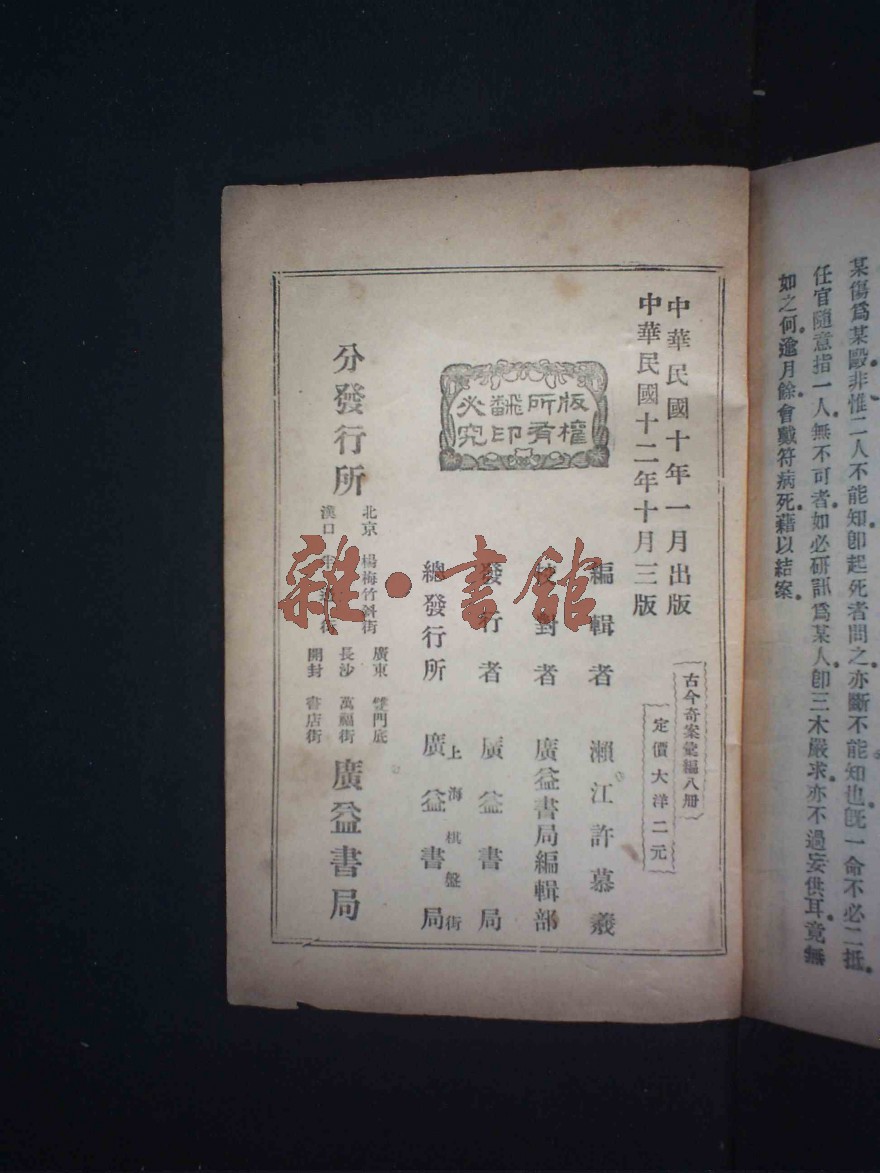 某傷爲某毆非惟二人不能知卽起死者問之亦斷不能知也旣一命不必二抵
任官隨意指一人無不可者如必研訊爲某人卽三木嚴求亦不過妄供耳竟無
如之何逾月餘會戴符病死藉以結案
中華民國十年一月出版
中華民國十二年十月三版
古今奇案彙編八册
定價大洋二元
編輯者 瀨江許慕羲
校對者 廣益書局編輯部
發行者 廣益書局
總發行所 上海棋盤街 廣益書局
版權
所有
翻印
必究
分發行所
北京 楊梅竹斜街
漢口
廣東 雙門底
長沙 萬福街
開封 書店街
廣益書局
雜·書館